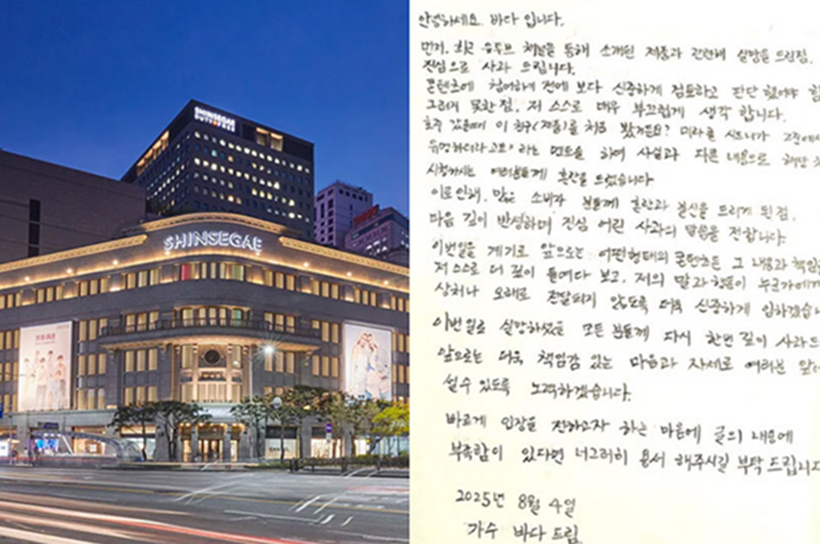 SHINSEGAE
SHINSEGAE
안녕하세요. 바다 입니다.
먼저, 최근 유튜브 채널을 통해 소개된 제품과 관련해 실망을 드린점,
진심으로 사과 드립니다.
콘텐츠에 참여하기 전에 보다 신중하게 검토하고 판단 했어야
그러지 못한 점, 저 스스로 매우 부끄럽게 생각 합니다.
호주 갔을때 이 친구(제품)를 처음 봤거든요?
유명하더라고요> 하는 멘트를 하여 사실과 다른 내용으로 해당
시청하시는 여러분들께 혼란을 드렸습니다
이로 인해, 많은 소비자 분들께 혼란과 불신을 드리게 된점,
마음 깊이 반성하며 진심 어린 사과의 말씀을 전합니다.
이번일을 계기로 앞으로는 어떤형태의 콘텐츠든 그 내용과
저 스스로 더 깊이 들여다 보고, 저의 말과 행동이 누군가에게
상처나 오해로 전달되지 않도록 더욱 신중하게 임하겠습니
이번 일로 실망하셨을 모든 분들께 다시 한번 깊이 사과드
앞으로는 더욱 책임감 있는 마음과 자세로 여러분 앞에
설수 있도록 노력하겠습니다.
바르게 입장을 전하고자 하는 마음에 글의 내용에
부족함이 있다면 너그러이 용서 해주시길 부탁 드립니다
2025년 8월 4일
가수 바다 드림.